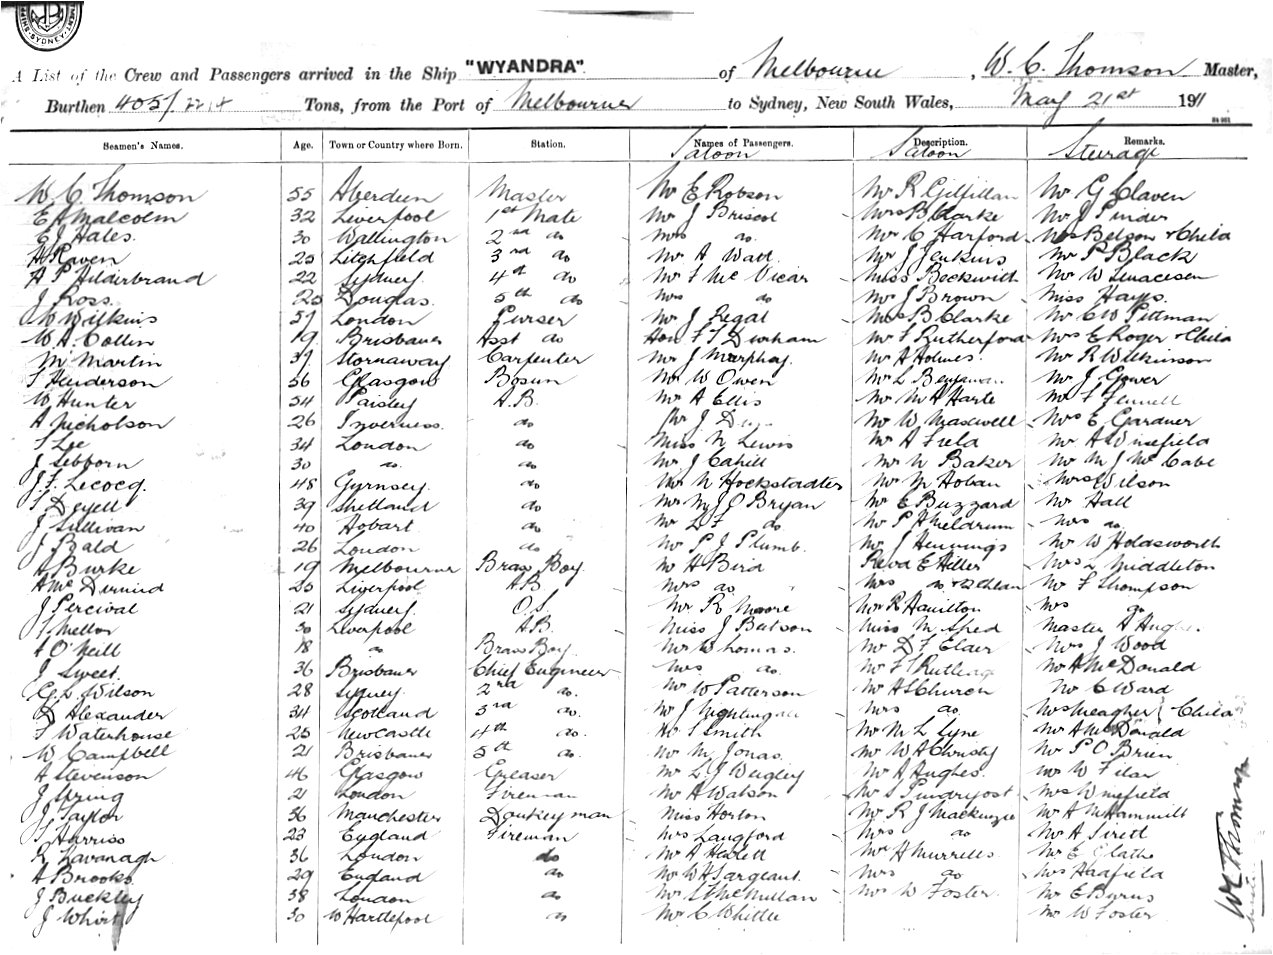 SYDNEY
A List of the Crew and Passengers arrived in the Ship "WYANDRA" of Melbourne, W. C. Thomson Master,
Burthen 4058/2218 Tons, from the Port of Melbourne to Sydney, New South Wales, May 21st 1911
Seamen's Names. Age. Town or Country where Born. Station. Names of Passengers. Description. Remarks.
Saloon Saloon Steerage
W. C. Thomson 55 Aberdeen Master Mr E Robson Mr R Gilfillan Mr G Claven
E A Malcolm 32 Liverpool 1st Mate Mr J Briscol Mrs B Clarke Mr J Pinder
E J Hales 30 Wallington 2nd do Mrs do Mr C Harford Mrs Belson + Child
H Raven 25 Litchfield 3rd do Mr A Wall Mr J Jenkins Mr P Black
A P Hilderbrand 22 Sydney 4th do Mr F McVicar Miss Beckwith Mr W
J Ross 25 Douglas 5th do Mrs do Mr J Brown Miss Hays
W Wilkins 57 London Purser Mr J Legal Mrs B Clarke Mr C W Pittman
W. A. Collin 19 Brisbane Asst do Hon F T Durham Mr F Rutherford Mrs E Roger + Child
M Martin 37 Stornaway Carpenter Mr J Murphy Mr A Holmes Mr R Wilkinson
T Henderson 56 Glasgow Bosun Mr W Owen Mr L Benjamin Mr J Gower
W Hunter 54 Paisley A.B. Mr A Ellis Mr M A Harte Mr F Fennell
A Nicholson 26 Inverness do Mr J Mr W Maxwell Mrs E Gardner
T Lee 34 London do Miss N Lewis Mr A Field Mr A Winsfield
J Sebborn 30 do do Mr J Cahill Mr W Baker Mr M J McCabe
J. F. Lecocq 48 Gurnsey do Mr N Hockstadter Mr M Hoban Mrs Wilson
T Deyell 39 Shetland do Mr M J O Bryan Mr E Buzzard Mr Hall
J Sullivan 40 Hobart do Mr L F do Mr P A Meldrum Mrs do
J Bald 26 London do Mr P J Plumb Mr J Hennings Mr W Holdsworth
A Burke 19 Melbourne Brass Boy Mr A Bird Revd E Hiller Mrs L Middleton
A McDirmid 25 Liverpool A.B Mrs do Mrs do Mr F Thompson
J Percival 21 Sydney O.S. Mr R Moore Mr R Hamilton Mrs do
T Mellor 30 Liverpool A.B. Miss J Butson Miss M Shed Master A Hughes
A O'Neill 18 do Brass Boy Mr W Thomas Mr D F Elder Mrs J Wood
J Sweet 36 Brisbane Chief Engineer Mrs do Mr F S Rutledge Mr A McDonald
G. L. Wilson 28 Sydney 2nd do Mr W Patterson Mr A S Church Mr C Ward
D Alexander 34 Scotland 3rd do Mr J Nightingall Mrs do Mrs Meagher Child
F Waterhouse 25 Newcastle 4th do Mr S Smith Mr M L Lyne Mr A McDonald
W Campbell 21 Brisbane 5th do Mr M Jonas Mr W A Christy Mr P O Brien
A Stevenson 46 Glasgow Greaser Mr L J Weigley Mr A Hughes Mr W Filar
J Spring 21 London Fireman Mr A Watson Mr S Pendryfost Mrs Winsfield
J Taylor 36 Manchester Donkeyman Miss Horton Mr R J Mackenzie Mr A M Hammill
T Harriss 23 England Fireman Mrs Langford Mrs do Mr A Sirett
R Kavanagh 36 London do Mr A Hewlett Mr H Murrells Mr E
A Brooks 29 England do Mr W H Sargeant Mrs do Mrs Haafield
J Buckley 38 London do Mr L McMillan Mrs W Foster Mr E Byrns
J Whirt 30 W Hartlepool do Mr C Whittle Mr W Foster
W C Thomson
Master